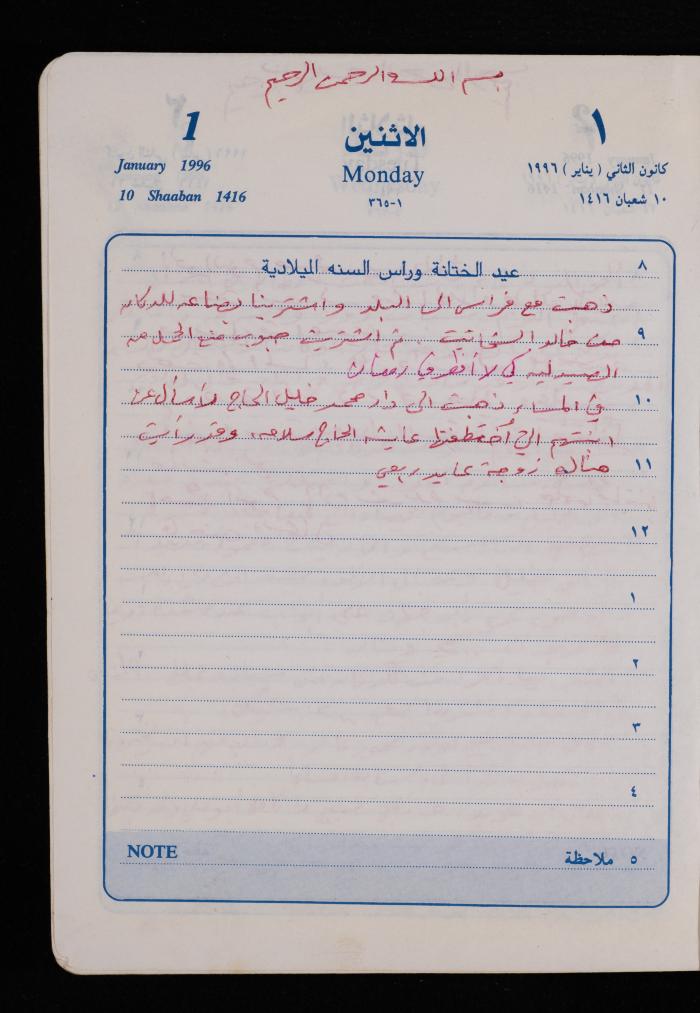 بسم الله الرحمن الرحيم
1 الاثنين ١
January 1996 Monday كانون الثاني ( يناير ) ١٩٩٦
10 Shaaban 1416 ١-٣٦٥ ١٠ شعبان ١٤١٦
٨ عيد الختانة وراس السنه الميلادية
ذهبت مع فراس الى البلد واشترينا بضاعه للدكان
٩ من خالد ثم اشتريت حبوب منع الحمل من
الصيدليه كي لا أفطر في رمضان
١٠ في المساء ذهبت الى دار محمد خليل الحاج لأسأل عن
ابنتهم التي أختطفتها عايشه الحاج سلامه، وقد رأيت
١١ هناك زوجة عايد ربعي
١٢
١
٢
٣
٤
NOTE ٥ ملاحظة